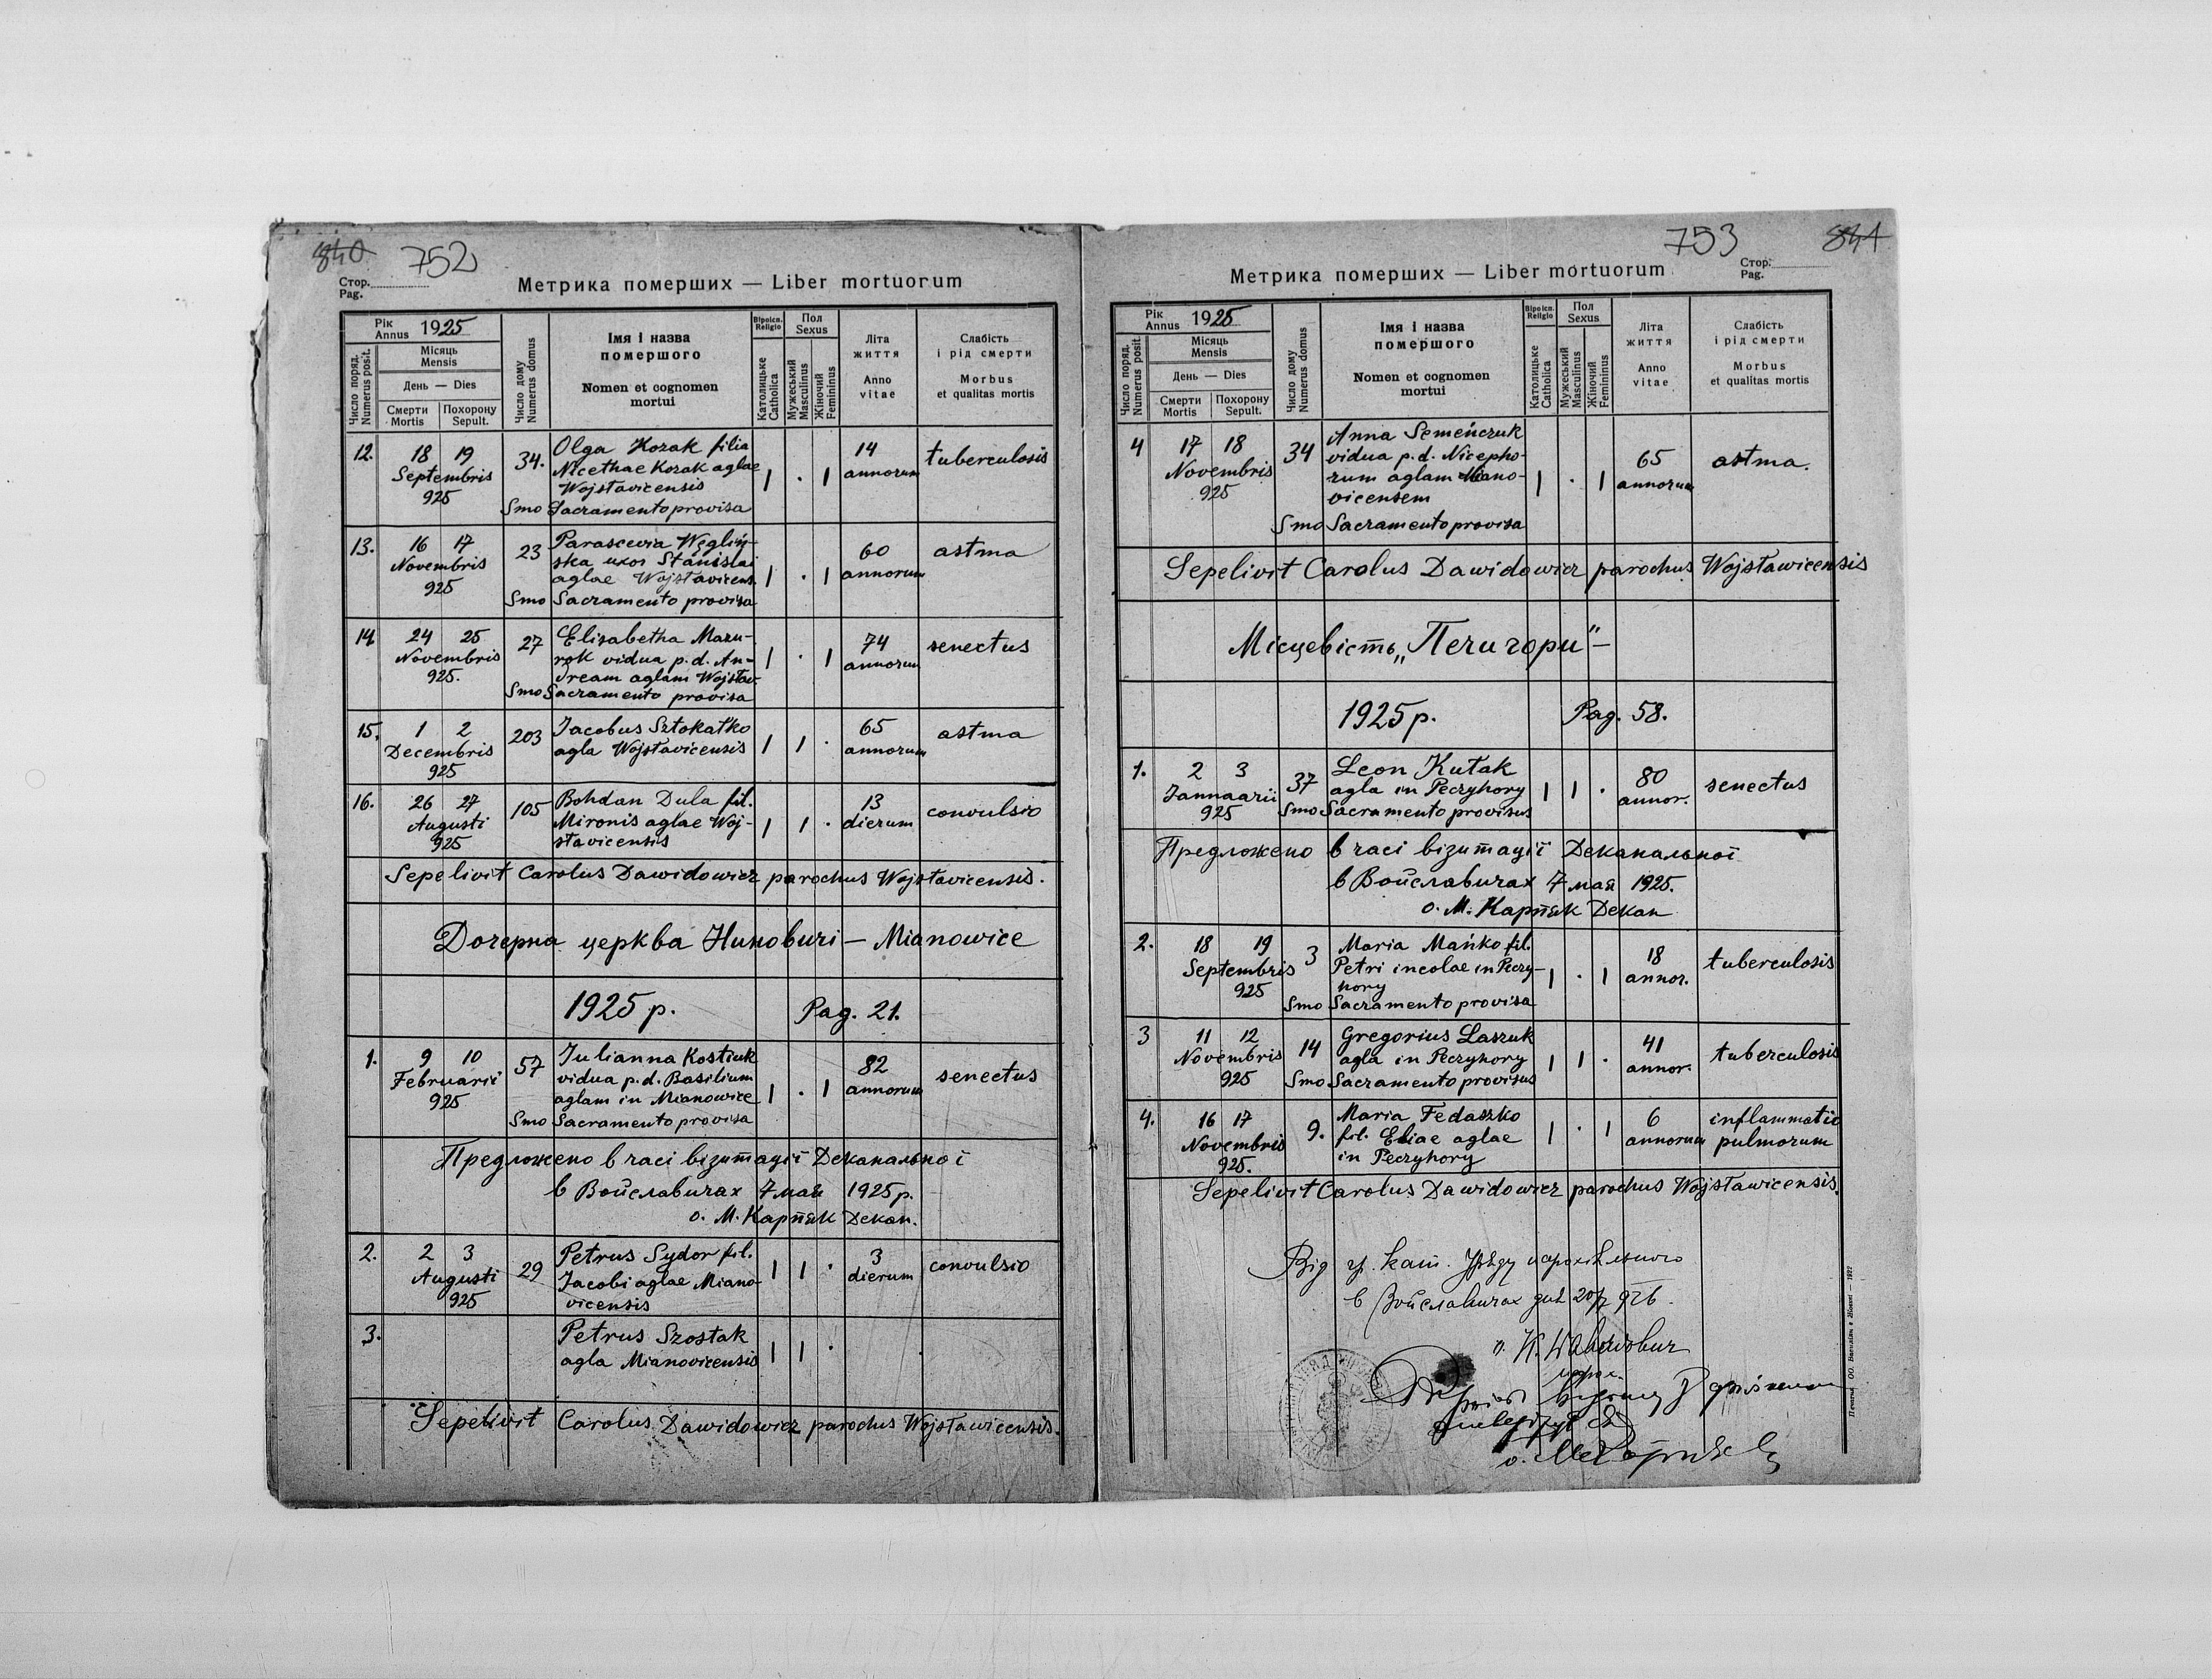 840 752
Стор.
Pag.
Метрика померших — Liber mortuorum
Рік
Annus 1925
Число поряд.
Numerus posit.
Місяць
Mensis
День — Dies
Смерти
Mortis
Похорону
Sepult.
Число дому
Numerus domus
Імя і назва
помершого
Nomen et cognomen
mortui
Віроісп.
Religio
Католицьке
Catholica
Пол
Sexus
Мужеський
Masculinus
Жіночий
Femininus
Літа
життя
Anno
vitae
Слабість
і рід смерти
Morbus
et qualitas mortis
12. 18 19 34. Olga Kozak filia 14 tuberculosis
Septembris Nicethae Kozak aglae 1 . 1 annorum
925 Wojsławicensis
Smo Sacramento provisa
13. 16 17 23 Parascevia Węgliń- 60 astma
Novembris ska uxor Stanislai 1 . 1 annorum
925 aglae Wojsławicens.
Smo Sacramento provisa
14. 24 25 27 Elisabetha Mazu- 74 senectus
Novembris rok vidua p.d. An- 1 . 1 annorum
925. dream aglam Wojsław.
Smo Sacramento provisa
15. 1 2 203 Jacobus Sztokałko 65 astma
Decembris agla Wojsławicensis 1 1 . annorum
925
16. 26 27 105 Bohdan Dula fil. 13 convulsio
Augusti Mironis aglae Woj- 1 1 . dierum
925 sławicensis
Sepelivit Carolus Dawidowicz parochus Wojsławicensis.
Дочерна церква Ниновичі — Mianowice
1925 р. Pag. 21.
1. 9 10 57 Julianna Kostiuk 82 senectus
Februarii vidua p.d. Basilium 1 . 1 annorum
925 aglam in Mianowice
Smo Sacramento provisa
Предложено в часі візитації Деканальної
в Войславичах 7 мая 1925 р.
о. М. Карпяк Декан.
2. 2 3 29 Petrus Sydor fil. 3 convulsio
Augusti Jacobi aglae Miano- 1 1 . dierum
925 vicensis
3. Petrus Szostak
agla Mianovicensis 1 1 .
Sepelivit Carolus Dawidowicz parochus Wojsławicensis.
753 841
Стор.
Pag.
Метрика померших — Liber mortuorum
Рік
Annus 1925
Число поряд.
Numerus posit.
Місяць
Mensis
День — Dies
Смерти
Mortis
Похорону
Sepult.
Число дому
Numerus domus
Імя і назва
помершого
Nomen et cognomen
mortui
Віроісп.
Religio
Католицьке
Catholica
Пол
Sexus
Мужеський
Masculinus
Жіночий
Femininus
Літа
життя
Anno
vitae
Слабість
і рід смерти
Morbus
et qualitas mortis
4 17 18 34 Anna Semeńczuk 65 astma.
Novembris vidua p.d. Nicepho- 1 . 1 annorum
925 rum aglam Miano-
vicensem
Smo Sacramento provisa
Sepelivit Carolus Dawidowicz parochus Wojsławicensis
Місцевість „Печигори" —
1925 р. Pag. 58.
1. 2 3 37 Leon Kutak 80 senectus
Jannuarii agla in Peczyhory 1 1 . annor.
925 Smo Sacramento provisus
Предложено в часі візитації Деканальної
в Войславичах 7 мая 1925.
о. М. Карпяк Декан
2. 18 19 3 Maria Mańko fil. 18 tuberculosis
Septembris Petri incolae in Peczy- 1 . 1 annor.
925 hory
Smo Sacramento provisa
3 11 12 14 Gregorius Laszuk 41 tuberculosis
Novembris agla in Peczyhory 1 1 . annor.
925 Smo Sacramento provisus
4. 16 17 9. Maria Fedaszko 6 inflammatio
Novembris fil. Eliae aglae 1 . 1 annorum pulmorum
925. in Peczyhory
Sepelivit Carolus Dawidowicz parochus Wojsławicensis.
Від гр. кат. Уряду парохіяльного
в Войславичах дня 20/7 926.
о. К. Давидович
парох.